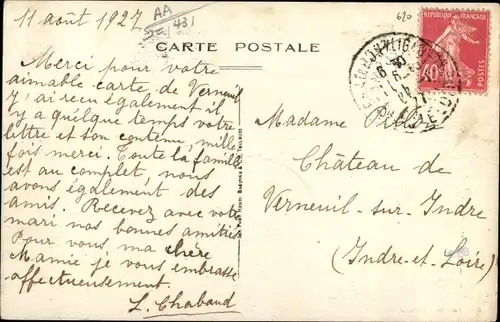 11 août 1927
AA
431
CARTE POSTALE
RÉPUBLIQUE FRANÇAISE
40c
POSTES
Merci pour votre
aimable carte de Verneuil
J'ai reçu également il
y a quelque temps votre
lettre et son contenu, mille
fois merci. Toute la famille
est au complet, nous
avons également des
amis. Recevez avec votre
mari nos bonnes amitiés
Pour vous ma chère
Mamie je vous embrasse
affectueusement.
L. Chabaud
Madame
Château de
Verneuil-sur-Indre
(Indre-et-Loire)